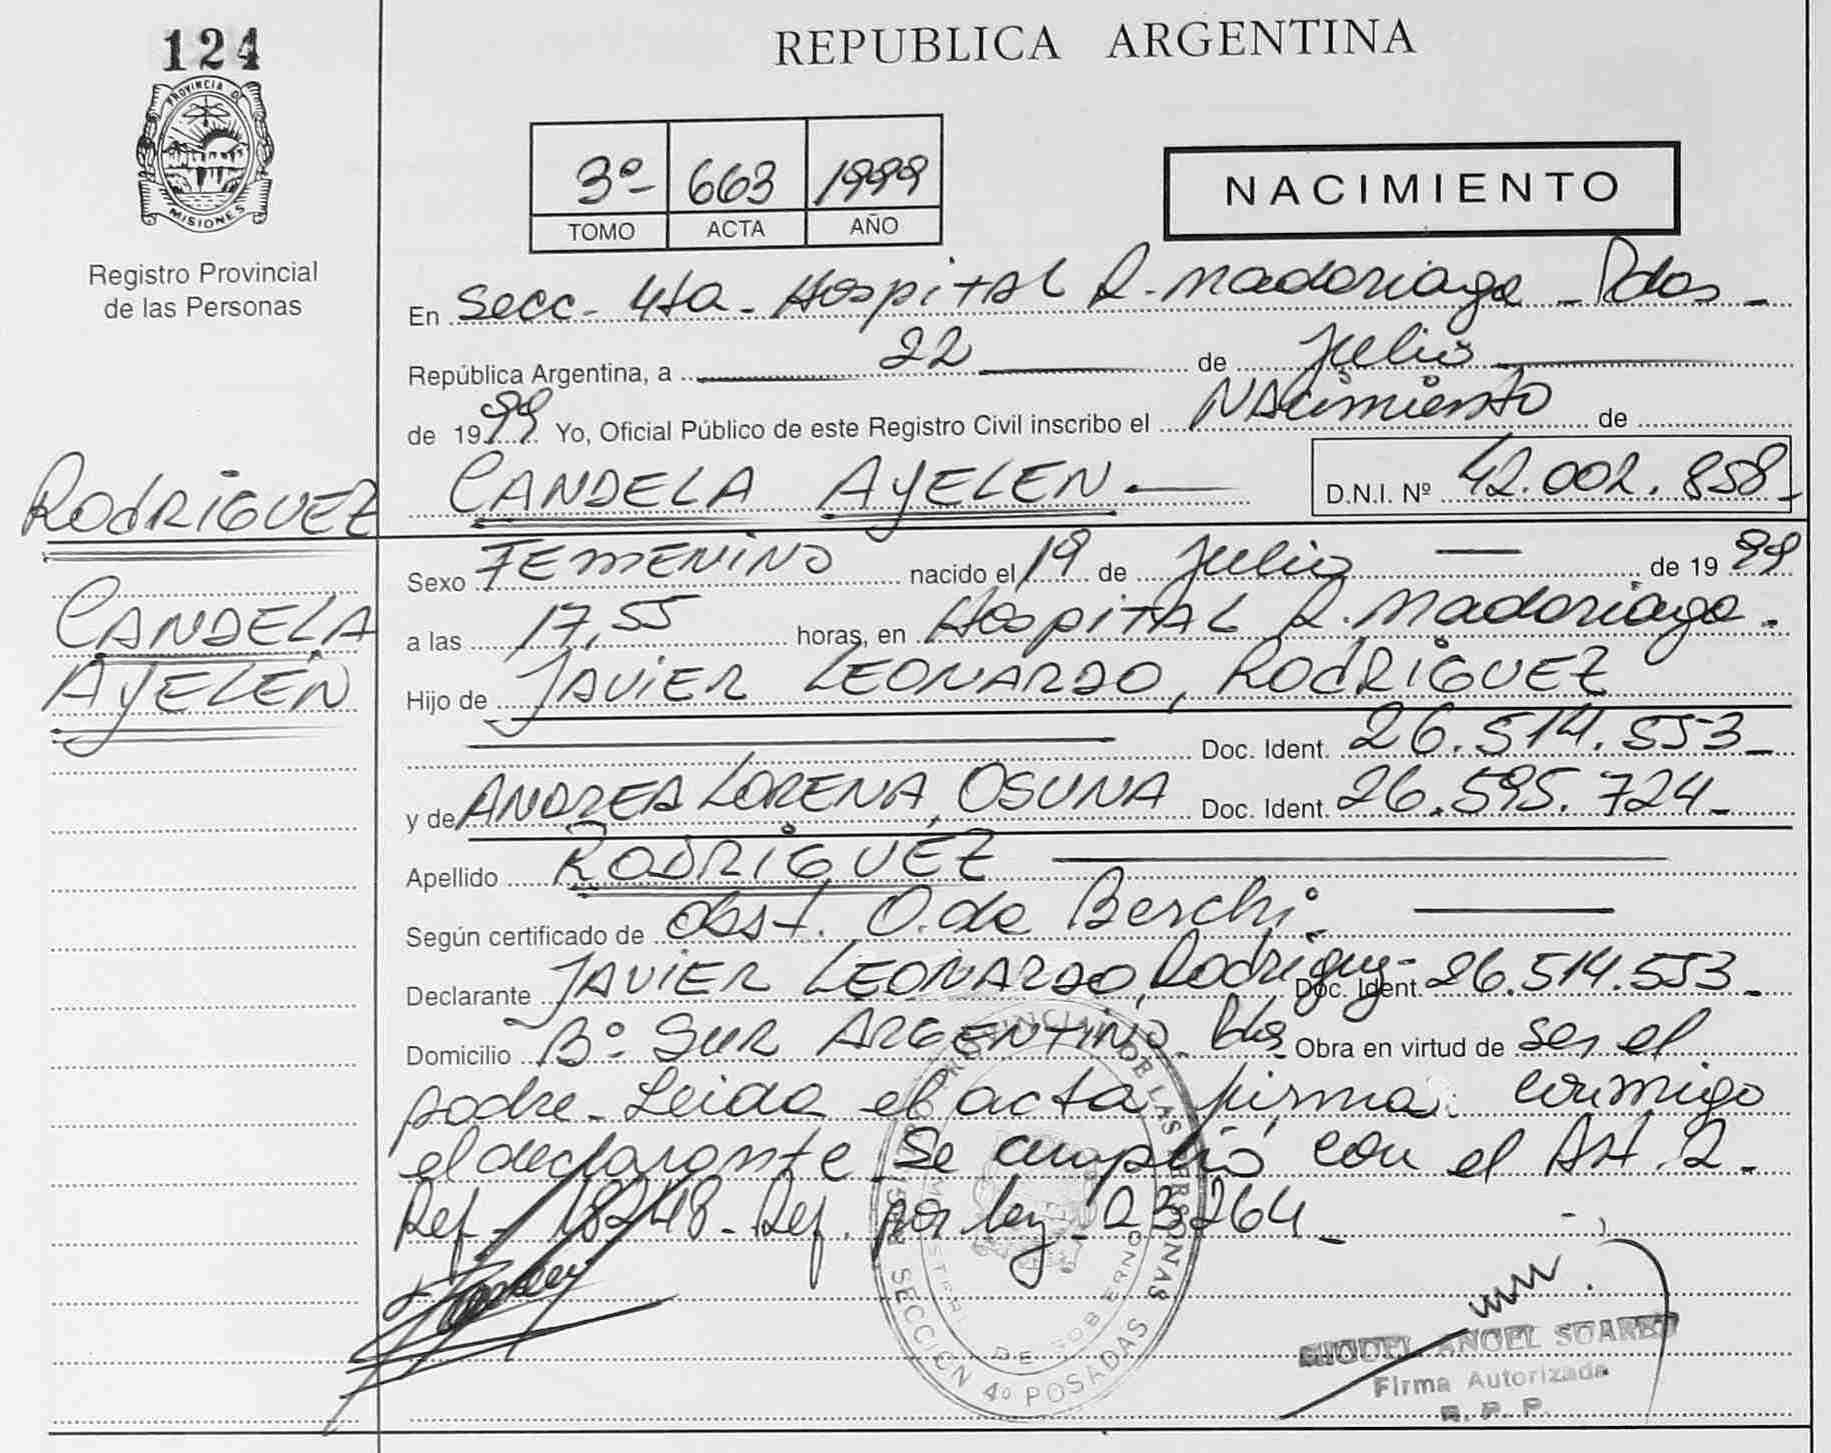 124
REPUBLICA ARGENTINA
PROVINCIA D
MISIONES
Registro Provincial
de las Personas
3º- 663 1999
TOMO ACTA AÑO
NACIMIENTO
En Secc- 4ta- Hospital R. Madariaga - Pdas -
República Argentina, a 22 de Julio
de 1999 Yo, Oficial Público de este Registro Civil inscribo el Nacimiento de
CANDELA AYELEN D.N.I. Nº 42.002.858-
RODRIGUEZ
CANDELA
AYELEN
Sexo FEMENINO nacido el 19 de Julio de 1999
a las 17,55 horas, en Hospital R. Madariaga.
Hijo de JAVIER LEONARDO, RODRIGUEZ
Doc. Ident. 26.514.553-
y de ANDREA LORENA, OSUNA Doc. Ident. 26.595.724-
Apellido RODRIGUEZ
Según certificado de Obst. O. de Berchi
Declarante JAVIER LEONARDO, Rodriguez- Doc. Ident. 26.514.553-
Domicilio Bº SUR ARGENTINO- Pdas Obra en virtud de ser el
padre- Leida el acta, firma conmigo
el declarante Se cumplió con el Art. 2-
Ref- 18248- Ref. por ley 23264-
SECCIÓN 4º POSADAS
MIGUEL ANGEL SUAREZ
Firma Autorizada
R. P. P.